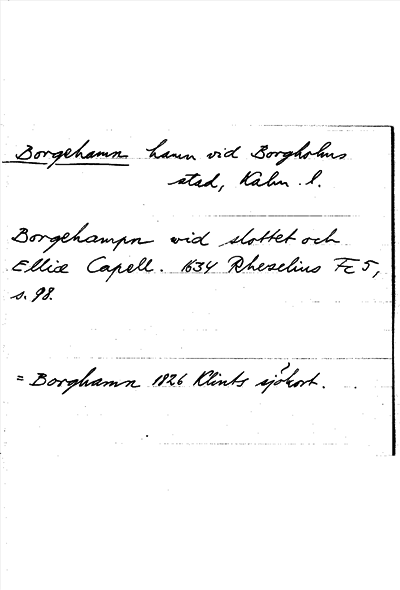 Borgehamn hamn vid Borgholms
stad, Kalm. l.
Borgehampn wid slottet och
Elliæ Capell. 1634 Rhezelius Fc 5,
s. 98.
= Borghamn 1826 Klints sjökort.